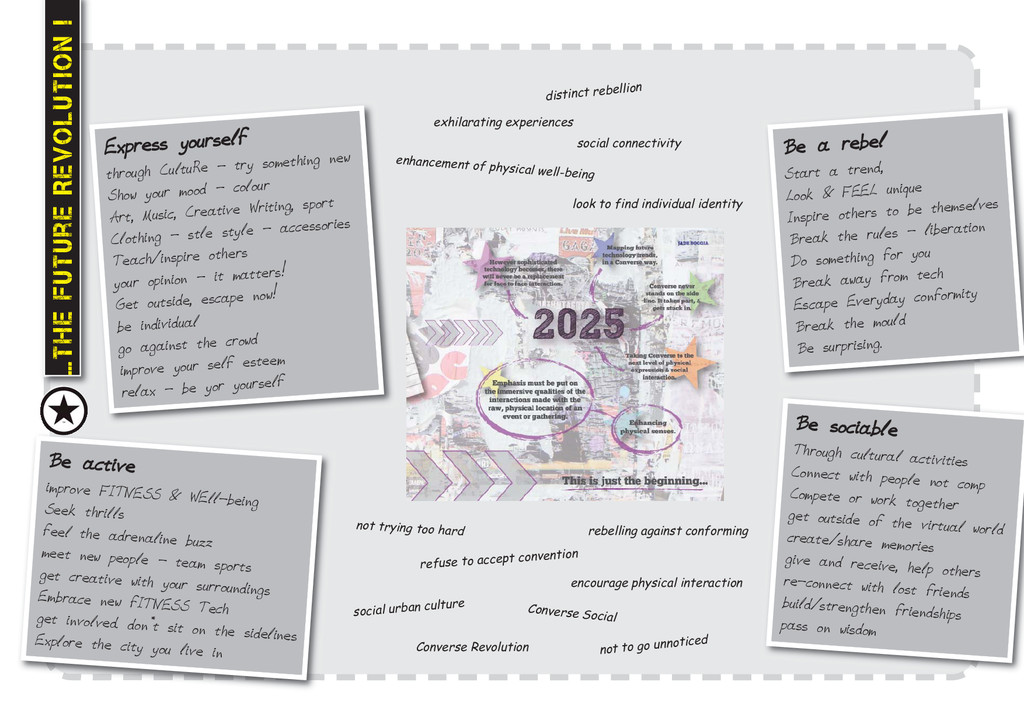 ...THE FUTURE REVOLUTION !
Express yourself
through CultuRe - try something new
Show your mood - colour
Art, Music, Creative Writing, sport
Clothing - stle style - accessories
Teach/inspire others
your opinion - it matters!
Get outside, escape now!
be individual
go against the crowd
improve your self esteem
relax - be yor yourself
Be active
improve FITNESS & WEll-being
Seek thrills
feel the adrenaline buzz
meet new people - team sports
get creative with your surroundings
Embrace new fITNESS Tech
get involved don't sit on the sidelines
Explore the city you live in
distinct rebellion
exhilarating experiences
social connectivity
enhancement of physical well-being
look to find individual identity
JADE BOGGIA
However sophisticated
technology becomes, there
will never be a replacement
for face to face interaction.
Mapping future
technology trends,
in a Converse way.
Converse never
stands on the side
line. It takes part, &
gets stuck in.
2025
Taking Converse to the
next level of physical
expression & social
interaction.
Emphasis must be put on
the immersive qualities of the
interactions made with the
raw, physical location of an
event or gathering.
Enhancing
physical senses.
This is just the beginning...
not trying too hard
rebelling against conforming
refuse to accept convention
encourage physical interaction
social urban culture
Converse Social
Converse Revolution
not to go unnoticed
Be a rebel
Start a trend,
Look & FEEL unique
Inspire others to be themselves
Break the rules - liberation
Do something for you
Break away from tech
Escape Everyday conformity
Break the mould
Be surprising.
Be sociable
Through cultural activities
Connect with people not comp
Compete or work together
get outside of the virtual world
create/share memories
give and receive, help others
re-connect with lost friends
build/strengthen friendships
pass on wisdom